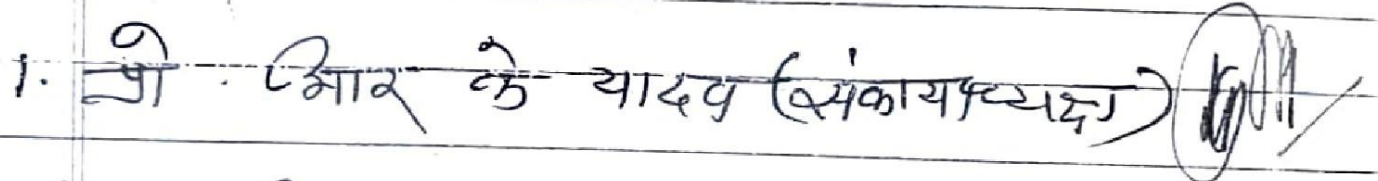 1. प्रो. आर के यादव (संकायाध्यक्ष)